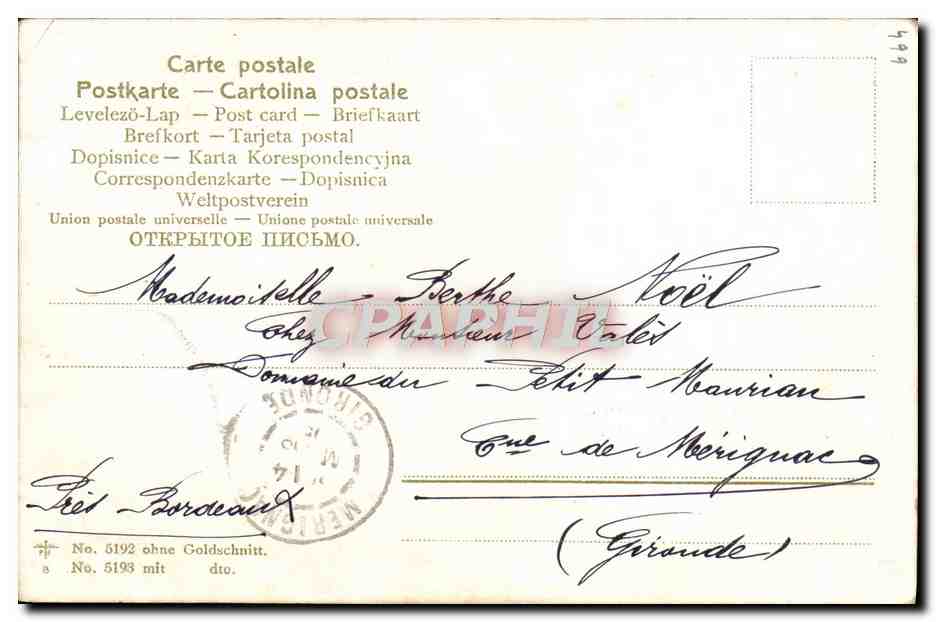 499
Carte postale
Postkarte — Cartolina postale
Levelező-Lap — Post card — Briefkaart
Brefkort — Tarjeta postal
Dopisnice — Karta Korespondencyjna
Correspondenzkarte — Dopisnica
Weltpostverein
Union postale universelle — Unione postale universale
ОТКРЫТОЕ ПИСЬМО.
Mademoiselle Berthe Noël
CPAPHIL
Chez Monsieur Valès
Domaine du Petit Maurian
Cne de Mérignac
Près Bordeaux
(Gironde)
MERIGNAC
GIRONDE
14
No. 5192 ohne Goldschnitt.
8 No. 5193 mit dto.